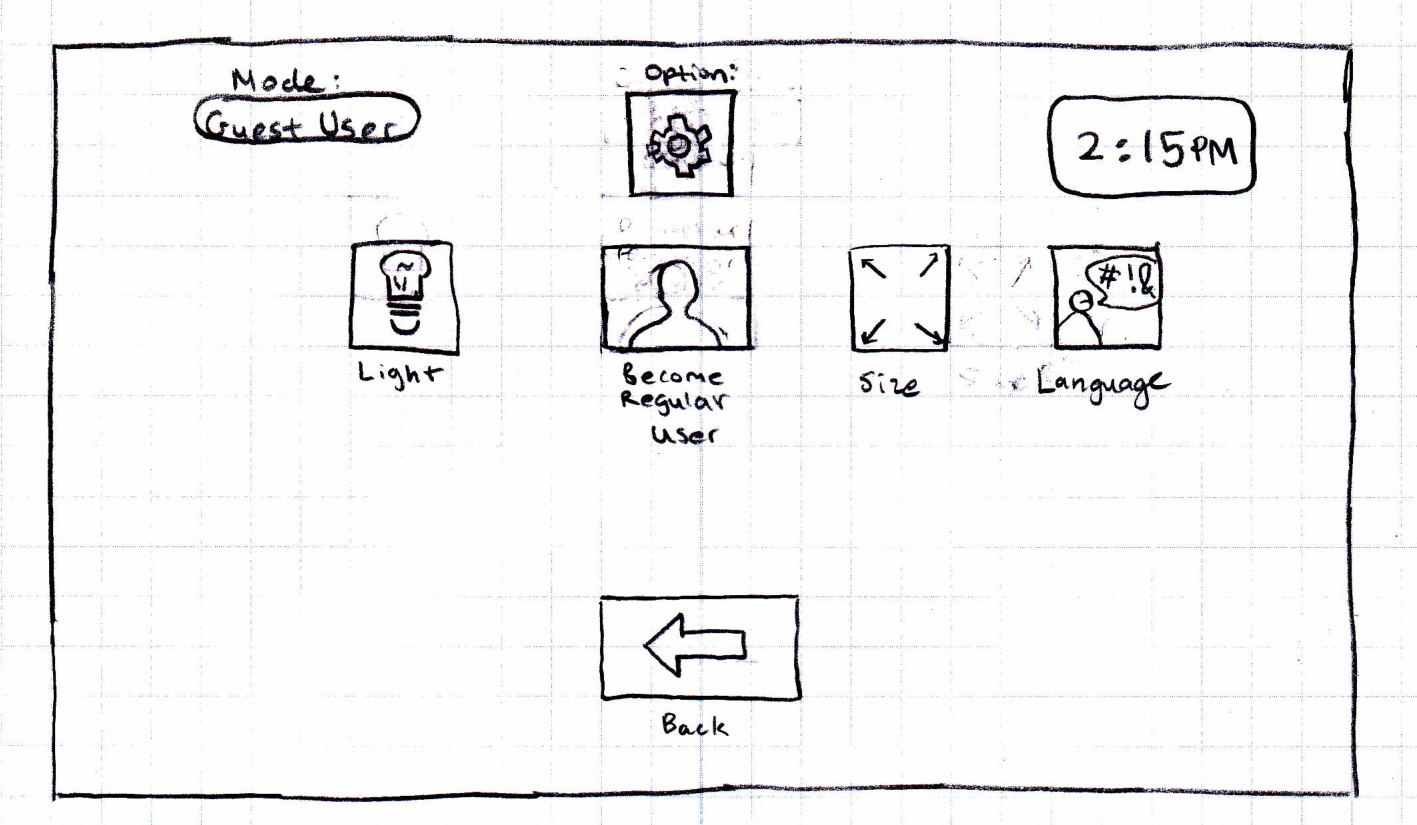 Mode:
Guest User
Option:
2:15PM
#!&
Light
Become
Regular
User
Size
Language
Back